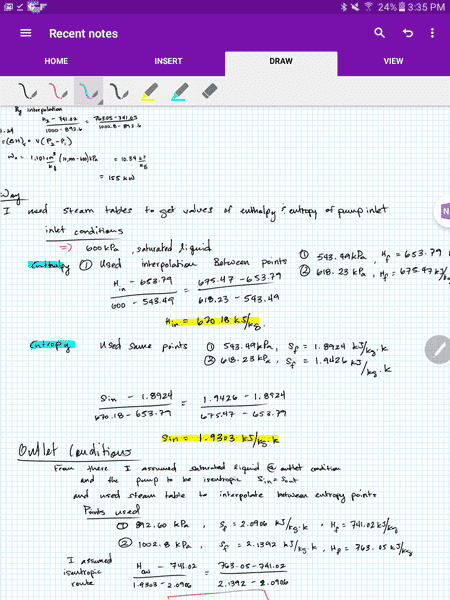 24% 3:35 PM
Recent notes
HOME INSERT DRAW VIEW
By interpolation
H₂ - 741.02 / 1000 - 892.6 = 763.05 - 741.02 / 1002.8 - 892.6
= V(P₂-P₁)
= 10.34 kJ/kg
= 155 kW
Way
I used steam tables to get values of enthalpy & entropy of pump inlet
inlet conditions
=> 600 kPa, saturated liquid
Enthalpy ① Used interpolation Between points ① 543.49 kPa, Hf = 653.79
② 618.23 kPa, Hf = 675.47 kJ/kg
Hin - 653.79 / 600 - 543.49 = 675.47 - 653.79 / 618.23 - 543.49
Hin = 670.18 kJ/kg.
Entropy Used same points ① 543.49 kPa, Sf = 1.8924 kJ/kg.k
② 618.23 kPa, Sf = 1.9426 kJ/kg.k
Sin - 1.8924 / 670.18 - 653.79 = 1.9426 - 1.8924 / 675.47 - 653.79
Sin = 1.9303 kJ/kg.k
Outlet Conditions
From there I assumed saturated liquid @ outlet condition
and the pump to be isentropic Sin = Sout
and used steam table to interpolate between entropy points
Points used
① 892.60 kPa, Sf = 2.0906 kJ/kg.k · Hf = 741.02 kJ/kg
② 1002.8 kPa, Sf = 2.1392 kJ/kg.k, Hf = 763.05 kJ/kg
I assumed
isentropic
route
Hout - 741.02 / 1.9303 - 2.0906 = 763.05 - 741.02 / 2.1392 - 2.0906